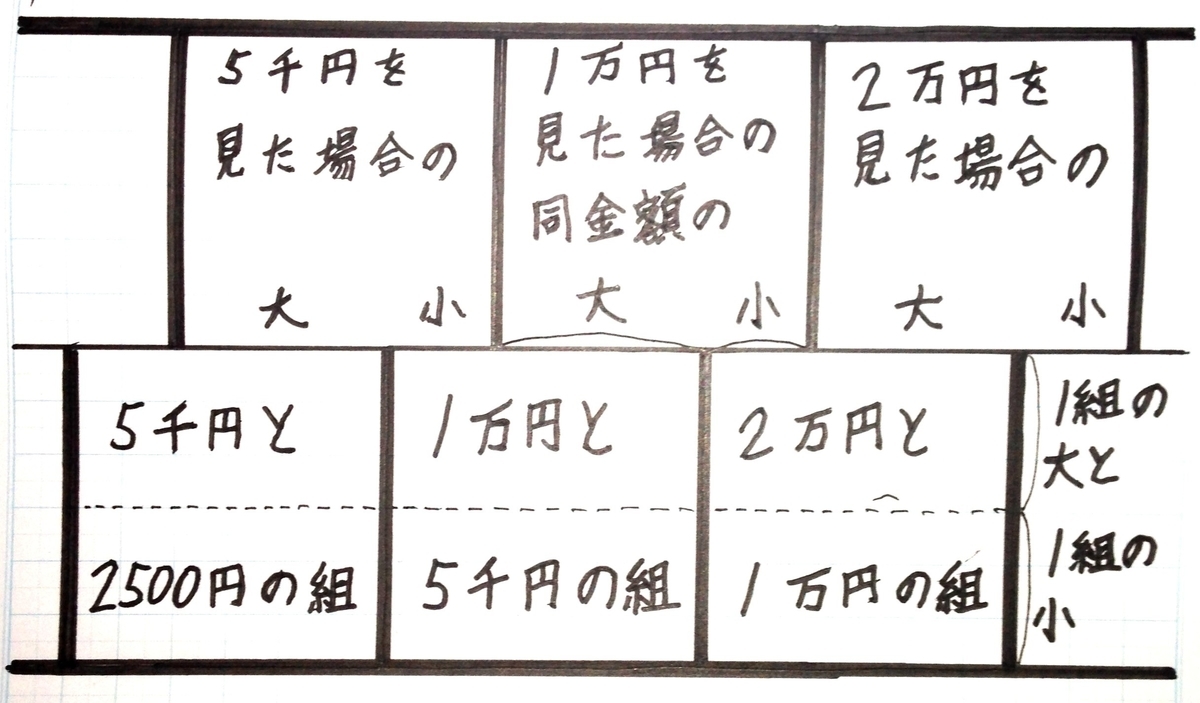 5千円を
見た場合の
大 小
1万円を
見た場合の
同金額の
大 小
2万円を
見た場合の
大 小
5千円と
2500円の組
1万円と
5千円の組
2万円と
1万円の組
1組の
大と
1組の
小